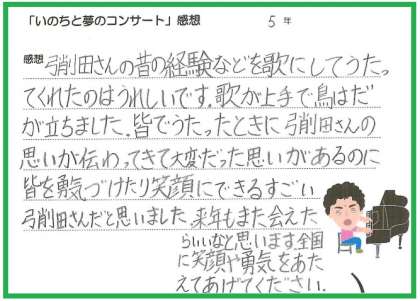 「いのちと夢のコンサート」感想　5年
感想 弓削田さんの昔の経験などを歌にしてうたっ
てくれたのはうれしいです。歌が上手で鳥はだ
が立ちました。皆でうたったときに弓削田さんの
思いが伝わってきて大変だった思いがあるのに
皆を勇気づけたり笑顔にできるすごい
弓削田さんだと思いました。来年もまた会えた
らいいなと思います。全国
に笑顔や勇気をあた
えてあげてください。